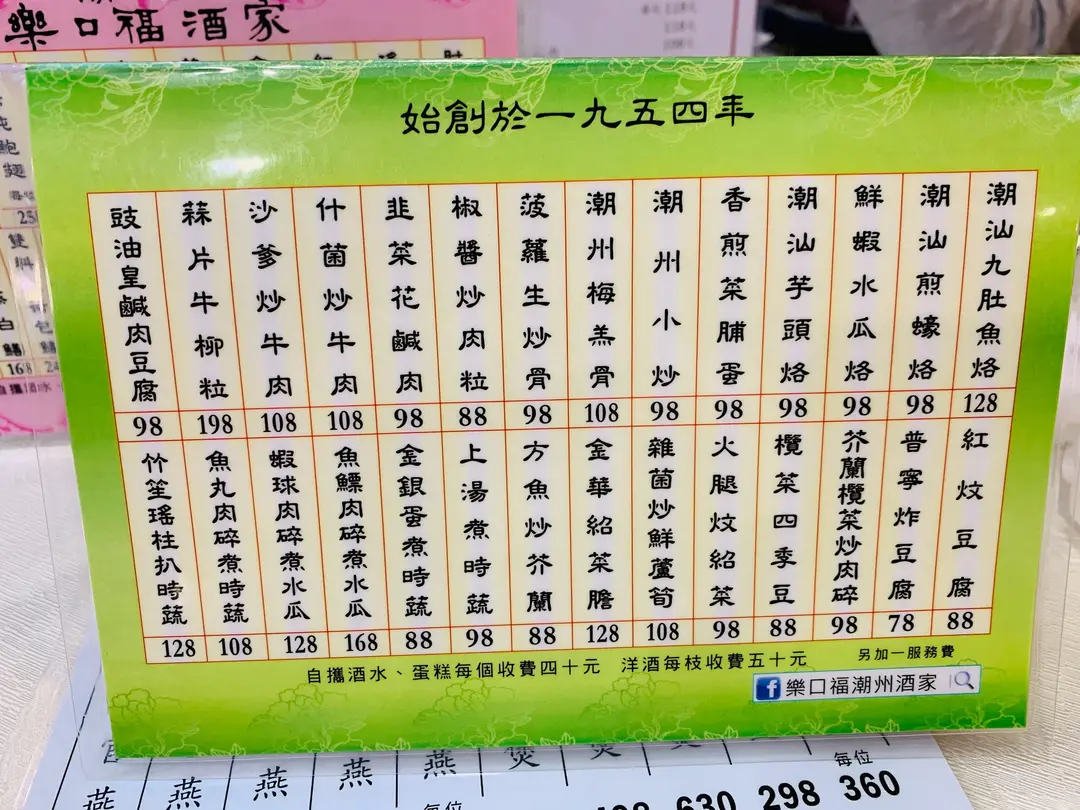 樂口福酒家
始創於一九五四年
潮汕九肚魚烙
128
潮汕煎蠔烙
98
鮮蝦水瓜烙
98
潮汕芋頭烙
98
香煎菜脯蛋
98
潮州小炒
98
潮州梅羔骨
108
菠蘿生炒骨
98
椒醬炒肉粒
88
韭菜花鹹肉
98
什菌炒牛肉
108
沙爹炒牛肉
108
蒜片牛柳粒
198
豉油皇鹹肉豆腐
98
紅炆豆腐
88
普寧炸豆腐
78
芥蘭欖菜炒肉碎
98
欖菜四季豆
88
火腿炆紹菜
98
雜菌炒鮮蘆筍
108
金華紹菜膽
128
方魚炒芥蘭
88
上湯煮時蔬
98
金銀蛋煮時蔬
88
魚鰾肉碎煮水瓜
168
蝦球肉碎煮水瓜
128
魚丸肉碎煮時蔬
108
竹笙瑤柱扒時蔬
128
自攜酒水、蛋糕每個收費四十元 洋酒每枝收費五十元 另加一服務費
樂口福潮州酒家
燕 燕 燕 燕 燕
每位
630 298 360